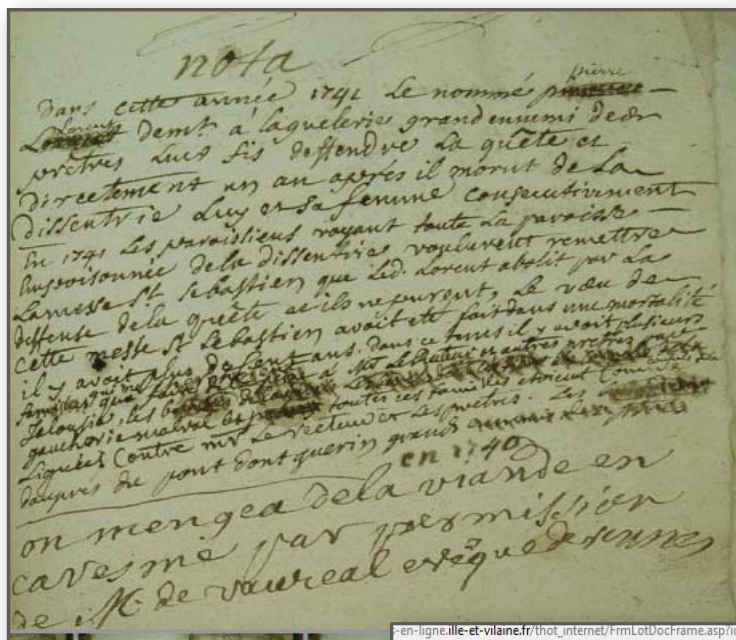 nota
pierre
Dans cette année 1741 Le nommé
Lorent demt. à laquelerie grand ennemi des
prêtres Luet fis deffendre La quête et
directement un an après il morut de La
dissentrie Luy et sa femme consecutivement
En 1741 Les paroissiens voyant toute La paroisse
Empoisonnée dela dissentrie voulurent remettre
La messe St Sebastien que Led. Lorent abolit par La
deffense dela quête et ils ne purent, Le vœu de
cette messe St Sebastien avoit eté fait dans une mortalité
il y avoit plus de cent ans. dans ce tems il y avoit plusieurs
familles qui à Mr Le Recteur et autres prêtres
Jalousie, les
gaucherie toutes ces familles etoient comme
Liguées contre mr Le recteur et Les prêtres. Les
dauprés du pont dontquerin grands
en 1740
on mengea dela viande en
caresme par permission
de Mr de vaureal evêque de rennes
s-en-ligne.ille-et-vilaine.fr/thot_internet/FrmLotDocFrame.asp?i